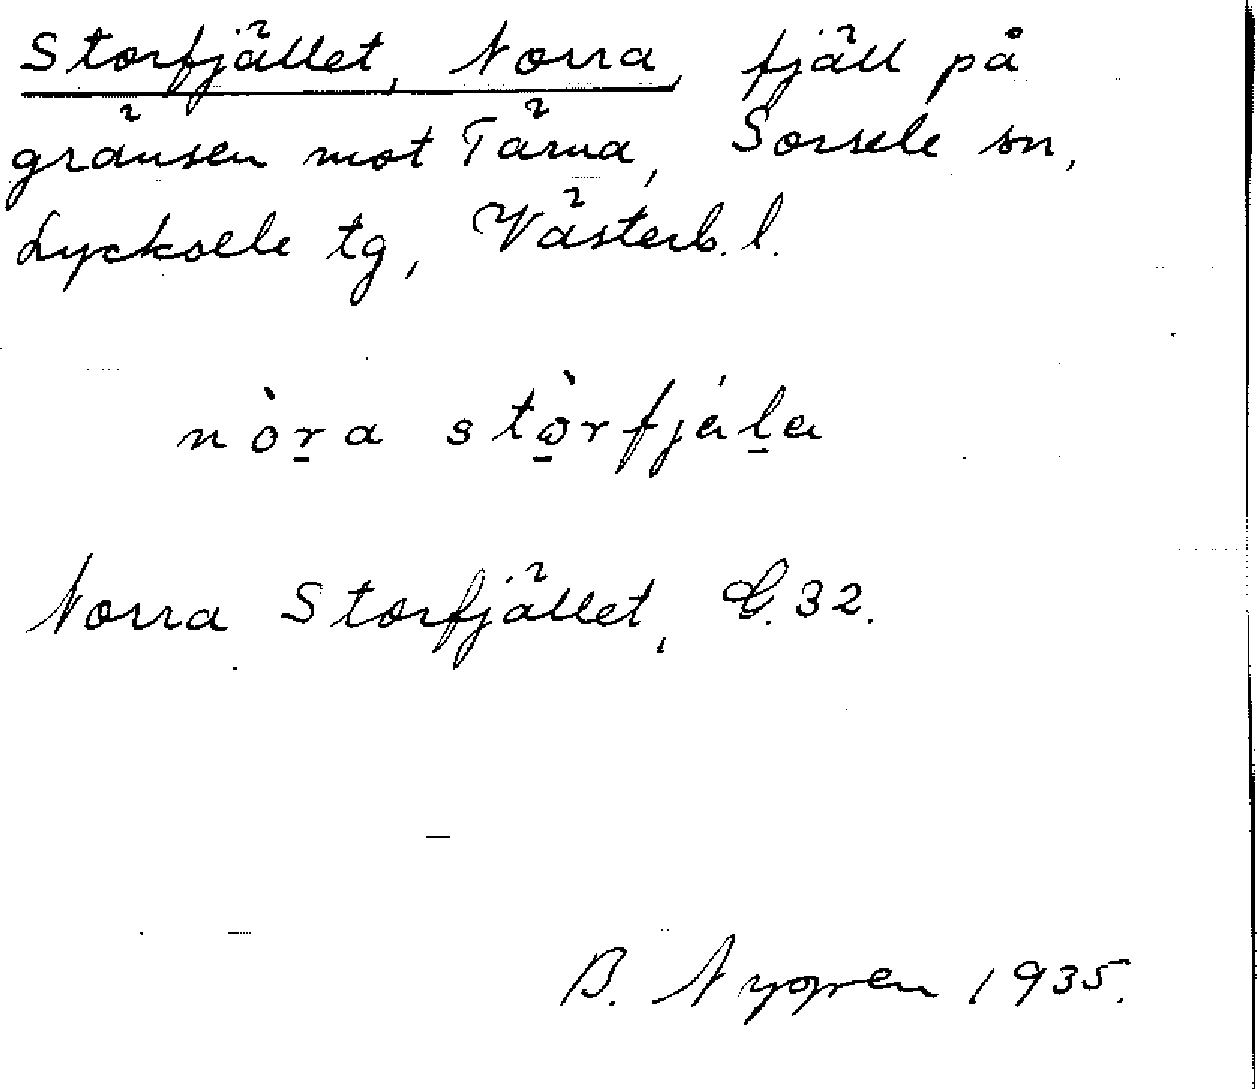 Storfjället, Norra, fjäll på
gränsen mot Tärna, Sorsele sn,
Lycksele tg, Västerb. l.
nòr̠a stò̠rfjál̠a
Norra Storfjället, G. 32.
B. Nygren 1935.